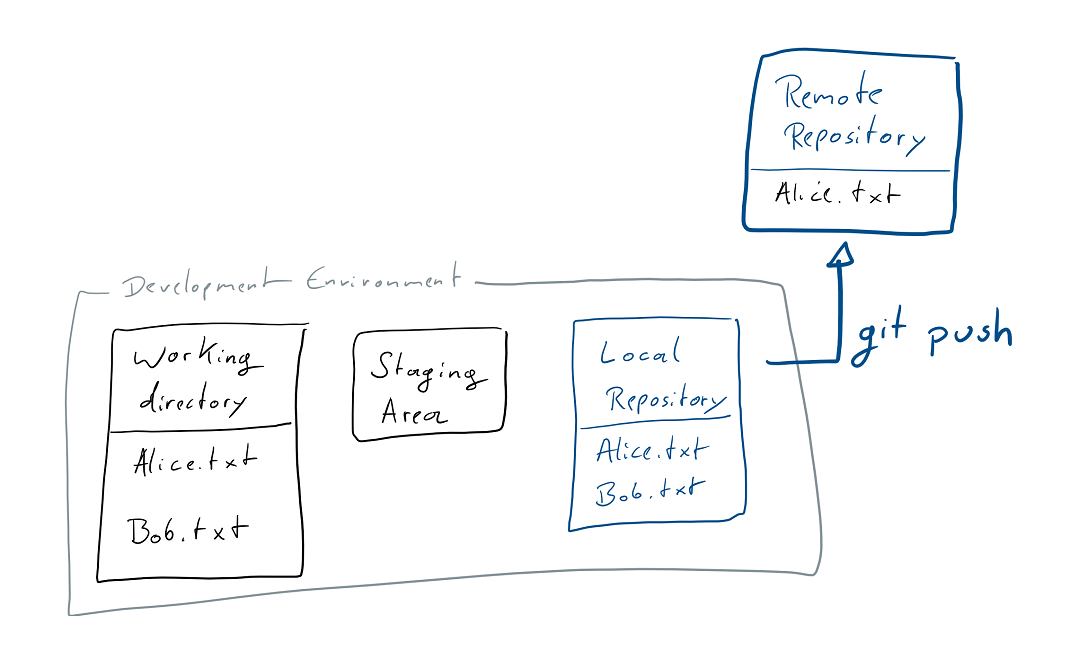 Remote
Repository
Alice.txt
Development Environment
git push
Working
directory
Alice.txt
Bob.txt
Staging
Area
Local
Repository
Alice.txt
Bob.txt